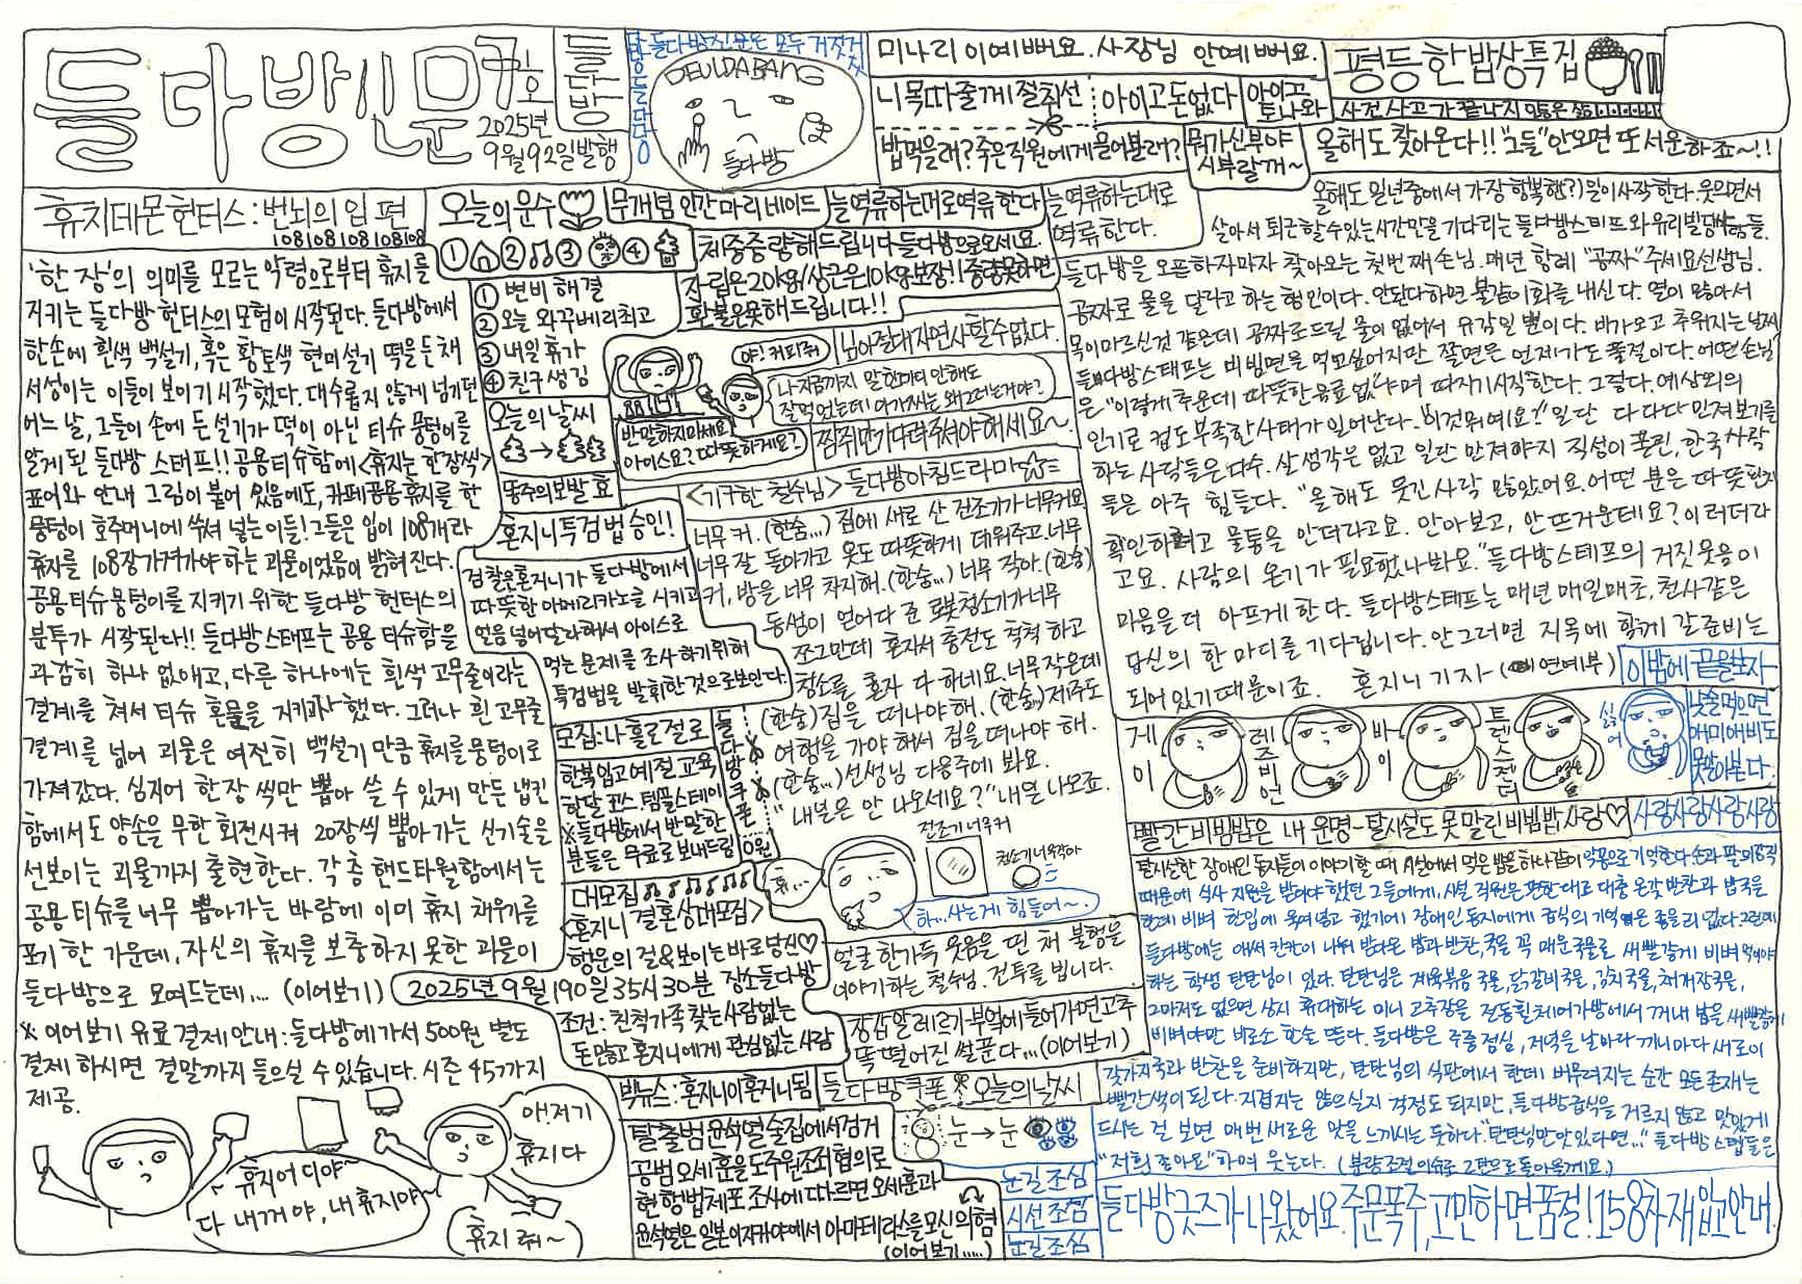 들다방신문
7호
2025년
9월92일발행
들다방
들다방신문은 모두 거짓것
DEULDABANG
들다방
미나리 이예뻐요. 사장님 안예뻐요.
니목따줄게 절취선
아이고돈없다
아이고
토나와
밥먹을래? 죽은직원에게 물어볼래?
뭐가신부야
시부랄꺼~
평등한밥상특집
올해도 찾아온다!! "그들" 안오면 또 서운하죠~!!
휴지데몬헌터스: 번뇌의 입 편
108108108108108
'한 장'의 의미를 모르는 악령으로부터 휴지를
지키는 들다방 헌터스의 모험이 시작된다. 들다방에서
한손에 흰색 백설기, 혹은 황토색 현미설기 떡을 든 채
서성이는 이들이 보이기 시작했다. 대수롭지 않게 넘기던
어느 날, 그들이 손에 든 설기가 떡이 아닌 티슈 뭉텅이를
알게 된 들다방 스태프!! 공용티슈함에 <휴지는 한장씩>
표어와 안내 그림이 붙어 있음에도, 카페공용휴지를 한
뭉텅이 호주머니에 쑤셔 넣는 이들! 그들은 입이 108개라
휴지를 108장가져가야 하는 괴물이었음이 밝혀진다.
공용티슈뭉텅이를 지키기 위한 들다방 헌터스의
분투가 시작된다!! 들다방스태프는 공용 티슈함을
과감히 하나 없애고, 다른 하나에는 흰색 고무줄이라는
결계를 쳐서 티슈 혼물을 지키고자 했다. 그러나 흰 고무줄
결계를 넘어 괴물은 여전히 백설기만큼 휴지를 뭉텅이로
가져갔다. 심지어 한장 씩만 뽑아 쓸 수 있게 만든 냅킨
함에서도 양손을 무한 회전시켜 20장씩 뽑아가는 신기술을
선보이는 괴물까지 출현한다. 각 층 핸드타월함에서는
공용티슈를 너무 뽑아가는 바람에 이미 휴지 채우기를
포기한 가운데, 자신의 휴지를 보충하지 못한 괴물이
들다방으로 모여드는데... (이어보기)
※ 이어보기 유료결제안내: 들다방에가서 500원 별도
결제 하시면 결말까지 들으실 수 있습니다. 시즌 45까지
제공.
~휴지어디야~
다 내꺼야, 내 휴지야~
애.저기
휴지다
휴지줘~
오늘의 운수
① ② ③ ④
① 변비 해결
② 오늘 와꾸베리최고
③ 내일 휴가
④ 친구생김
오늘의 날씨
똥주의보발효
무개념 인간마리네이드
늘역류하는대로역류한다
늘 역류하는대로
역류한다.
체중증량해드립니다 들다방으로오세요.
자립은20kg/상근은10kg보장!! 증량못하면
환불은못해드립니다!!
야! 커피줘
나지금까지 말한마디 안해도
잘먹었는데 아가씨는 왜그러는거야?
반말하지마세요
아이스요? 따뜻하게요?
찜쥐만기다려주셔야해세요~
<기구한 철수님> 들다방아침드라마
너무커. (한숨...) 집에 새로 산 건조기가 너무커요
너무 잘 돌아가고 옷도 따뜻하게 데워주고. 너무
커, 방을 너무 차지해. (한숨...) 너무 작아. (한숨)
동생이 얻어다 준 로봇청소기가너무
쪼그만데 혼자서 충전도 척척 하고
청소를 혼자 다 하네요. 너무작은데
(한숨)집을 떠나야해. (한숨)제주도
여행을 가야 해서 집을 떠나야 해.
(한숨...)선생님 다음주에 봐요.
"내일은 안 나오세요?" 내일 나오죠.
건조기너무커
청소기너무작아
휴...
하...사는게 힘들어~.
얼굴 한가득 웃음을 띤 채 불행을
이야기하는 철수님. 건투를 빕니다.
혼지니특검법승인!
검찰은혼지니가 들다방에서
따뜻한 아메리카노를 시키고
얼음 넣어달라해서 아이스로
먹는 문제를 조사하기위해
특검법을 발휘한것으로보인다.
모집: 나홀로절로
한복입고예절교육
한달코스. 템플스테이
※들다방에서 반말한
분들은 무료로보내드림
들다방쿠폰
0원
대모집♪♫♪♫♪♫
<혼지니 결혼상대모집>
행운의 걸&보이는바로당신♡
2025년 9월 190일 35시 30분 장소들다방
조건: 친척가족찾는사람없는
돈많고혼지니에게 관심없는사람
장삼알레르기부엌에들어가면고추
똑떨어진 썰푼다...(이어보기)
빅뉴스: 혼지니이혼지니됨
들다방쿠폰
오늘의날씨
눈→눈
눈길조심
시선조심
눈길조심
탈출범윤석열술집에서검거
공범오세훈을도주원조죄협의로
현행법체포 조사에따르면오세훈과
(이어보기.....)
올해도 일년중에서 가장 행복핸(?) 일이시작한다. 웃으면서
들다방을 오픈하자마자 찾아오는 첫번째손님. 매년 항례 "공짜" 주세요선생님.
공짜로 물을 달라고 하는 형인이다. 안된다하면 불같이화를 내신다. 열이 많아서
목이마르신것 같은데 공짜로드릴 물이 없어서 유감일 뿐이다. 바가오고 추워지는날씨
들다방스태프는 비빔면을 먹고싶어지만 쫄면은 언제가도 품절이다. 어떤손님
은 "이렇게추운데 따뜻한음료 없"냐며 따지기시작한다. 그렇다. 예상외의
인기로 컵도부족한사태가 일어난다. "이것뭐예요?" 일단 다 다다 만져보기를
하는 사람들은 다수. 살생각은 없고 일단 만져야지 직성이 풀린, 한국사람
들은 아주 힘들다. "올해도 웃긴사람 많았어요. 어떤 분은 따뜻한지
확인하려고 물통을 안더라고요. 안아보고, 안뜨거운데요? 이러더라
고요. 사람의 온기가 필요했나봐요." 들다방스태프의 거짓웃음이
마음을 더 아프게 한다. 들다방스태프는 매년 매일매초, 천사같은
당신의 한 마디를 기다립니다. 안그러면 지옥에 함께 갈준비는
되어있기때문이죠. 혼지니 기자-(연예부)
이밤에 끝을보자
게이
레즈비언
바이
트랜스젠더
싫어
낮술먹으면
애미애비도
못알아본다.
빨간비빔밥은 내 운명-탈시설도 못 말린 비빔밥사랑♡
사랑사랑사랑사랑
탈시설한 장애인 동지들이 이야기할 때 시설에서 먹은 밥을 하나같이 악몽으로기억한다. 손과 팔의 강직
때문에 식사 지원을 받아야했던 그들에게, 시설 직원은 편한 대로 대충 온갖 반찬과 밥국을
한데 비벼 한입에 욱여넣고 했기에 장애인동지에게 급식의 기억은 좋을리 없다. 그런데
들다방에는 애써 칸칸이 나눠 받아온 밥과 반찬, 국을 꼭 매운국물로 새빨갛게 비벼 먹어야
하는 학생 탄탄님이 있다. 탄탄님은 제육볶음 국물, 닭갈비국물, 김치국물, 육개장국물,
그마저도 없으면 상시 휴대하는 미니 고추장을 전동휠체어가방에서 꺼내 밥을 새빨갛게
비벼야만 비로소 한술 뜬다. 들다방은 주중 점심, 저녁을 날마다 끼니마다 새로이
갖가지국과 반찬을 준비하지만, 탄탄님의 식판에서 한데 버무려지는 순간 모든존재는
빨간색이 된다. 지겹지는 않으실지 걱정도 되지만, 들다방급식을 거르지 않고 맛있게
드시는 걸 보면 매번 새로운 맛을 느끼시는 듯하다. "탄탄님만 맛있다면..." 들다방 스탭들은
"저희 좋아요"하며 웃는다. (분량조절의수로 2탄으로돌아올게요.)
들다방굿즈가나왔어요. 주문폭주, 고만하면품절! 158차재입고안내.